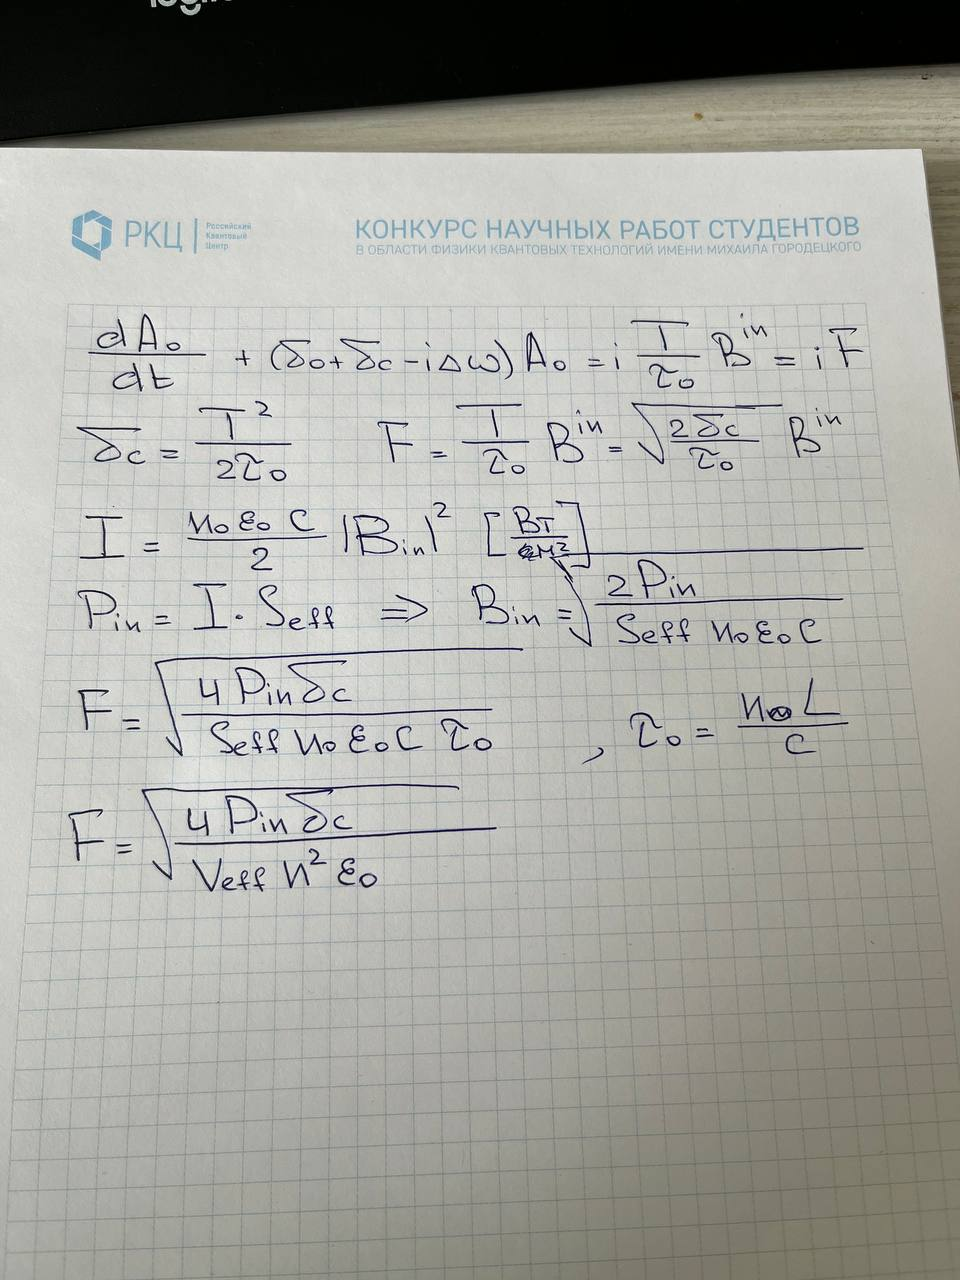 РКЦ
Российский
Квантовый
Центр
КОНКУРС НАУЧНЫХ РАБОТ СТУДЕНТОВ
В ОБЛАСТИ ФИЗИКИ КВАНТОВЫХ ТЕХНОЛОГИЙ ИМЕНИ МИХАИЛА ГОРОДЕЦКОГО
dA₀/dt + (δ₀ + δc - iΔω) A₀ = i T/τ₀ Bⁱⁿ = i F
δc = T²/2τ₀ F = T/τ₀ Bⁱⁿ = √(2δc/τ₀) Bⁱⁿ
I = n₀ε₀c/2 |Bin|² [Вт/м²]
Pin = I · Seff ⇒ Bin = √(2Pin/(Seff n₀ε₀c))
F = √(4Pinδc/(Seff n₀ε₀c τ₀)) , τ₀ = n₀L/c
F = √(4Pinδc/(Veff n² ε₀))